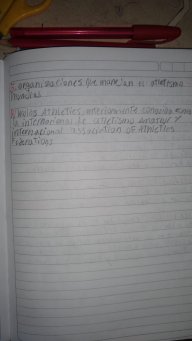 organizaciones que manejan el atletismo
mundial
World Athletics, anteriormente conocida como
la internacional de atletismo amateur y
international association of Athletics
Federations